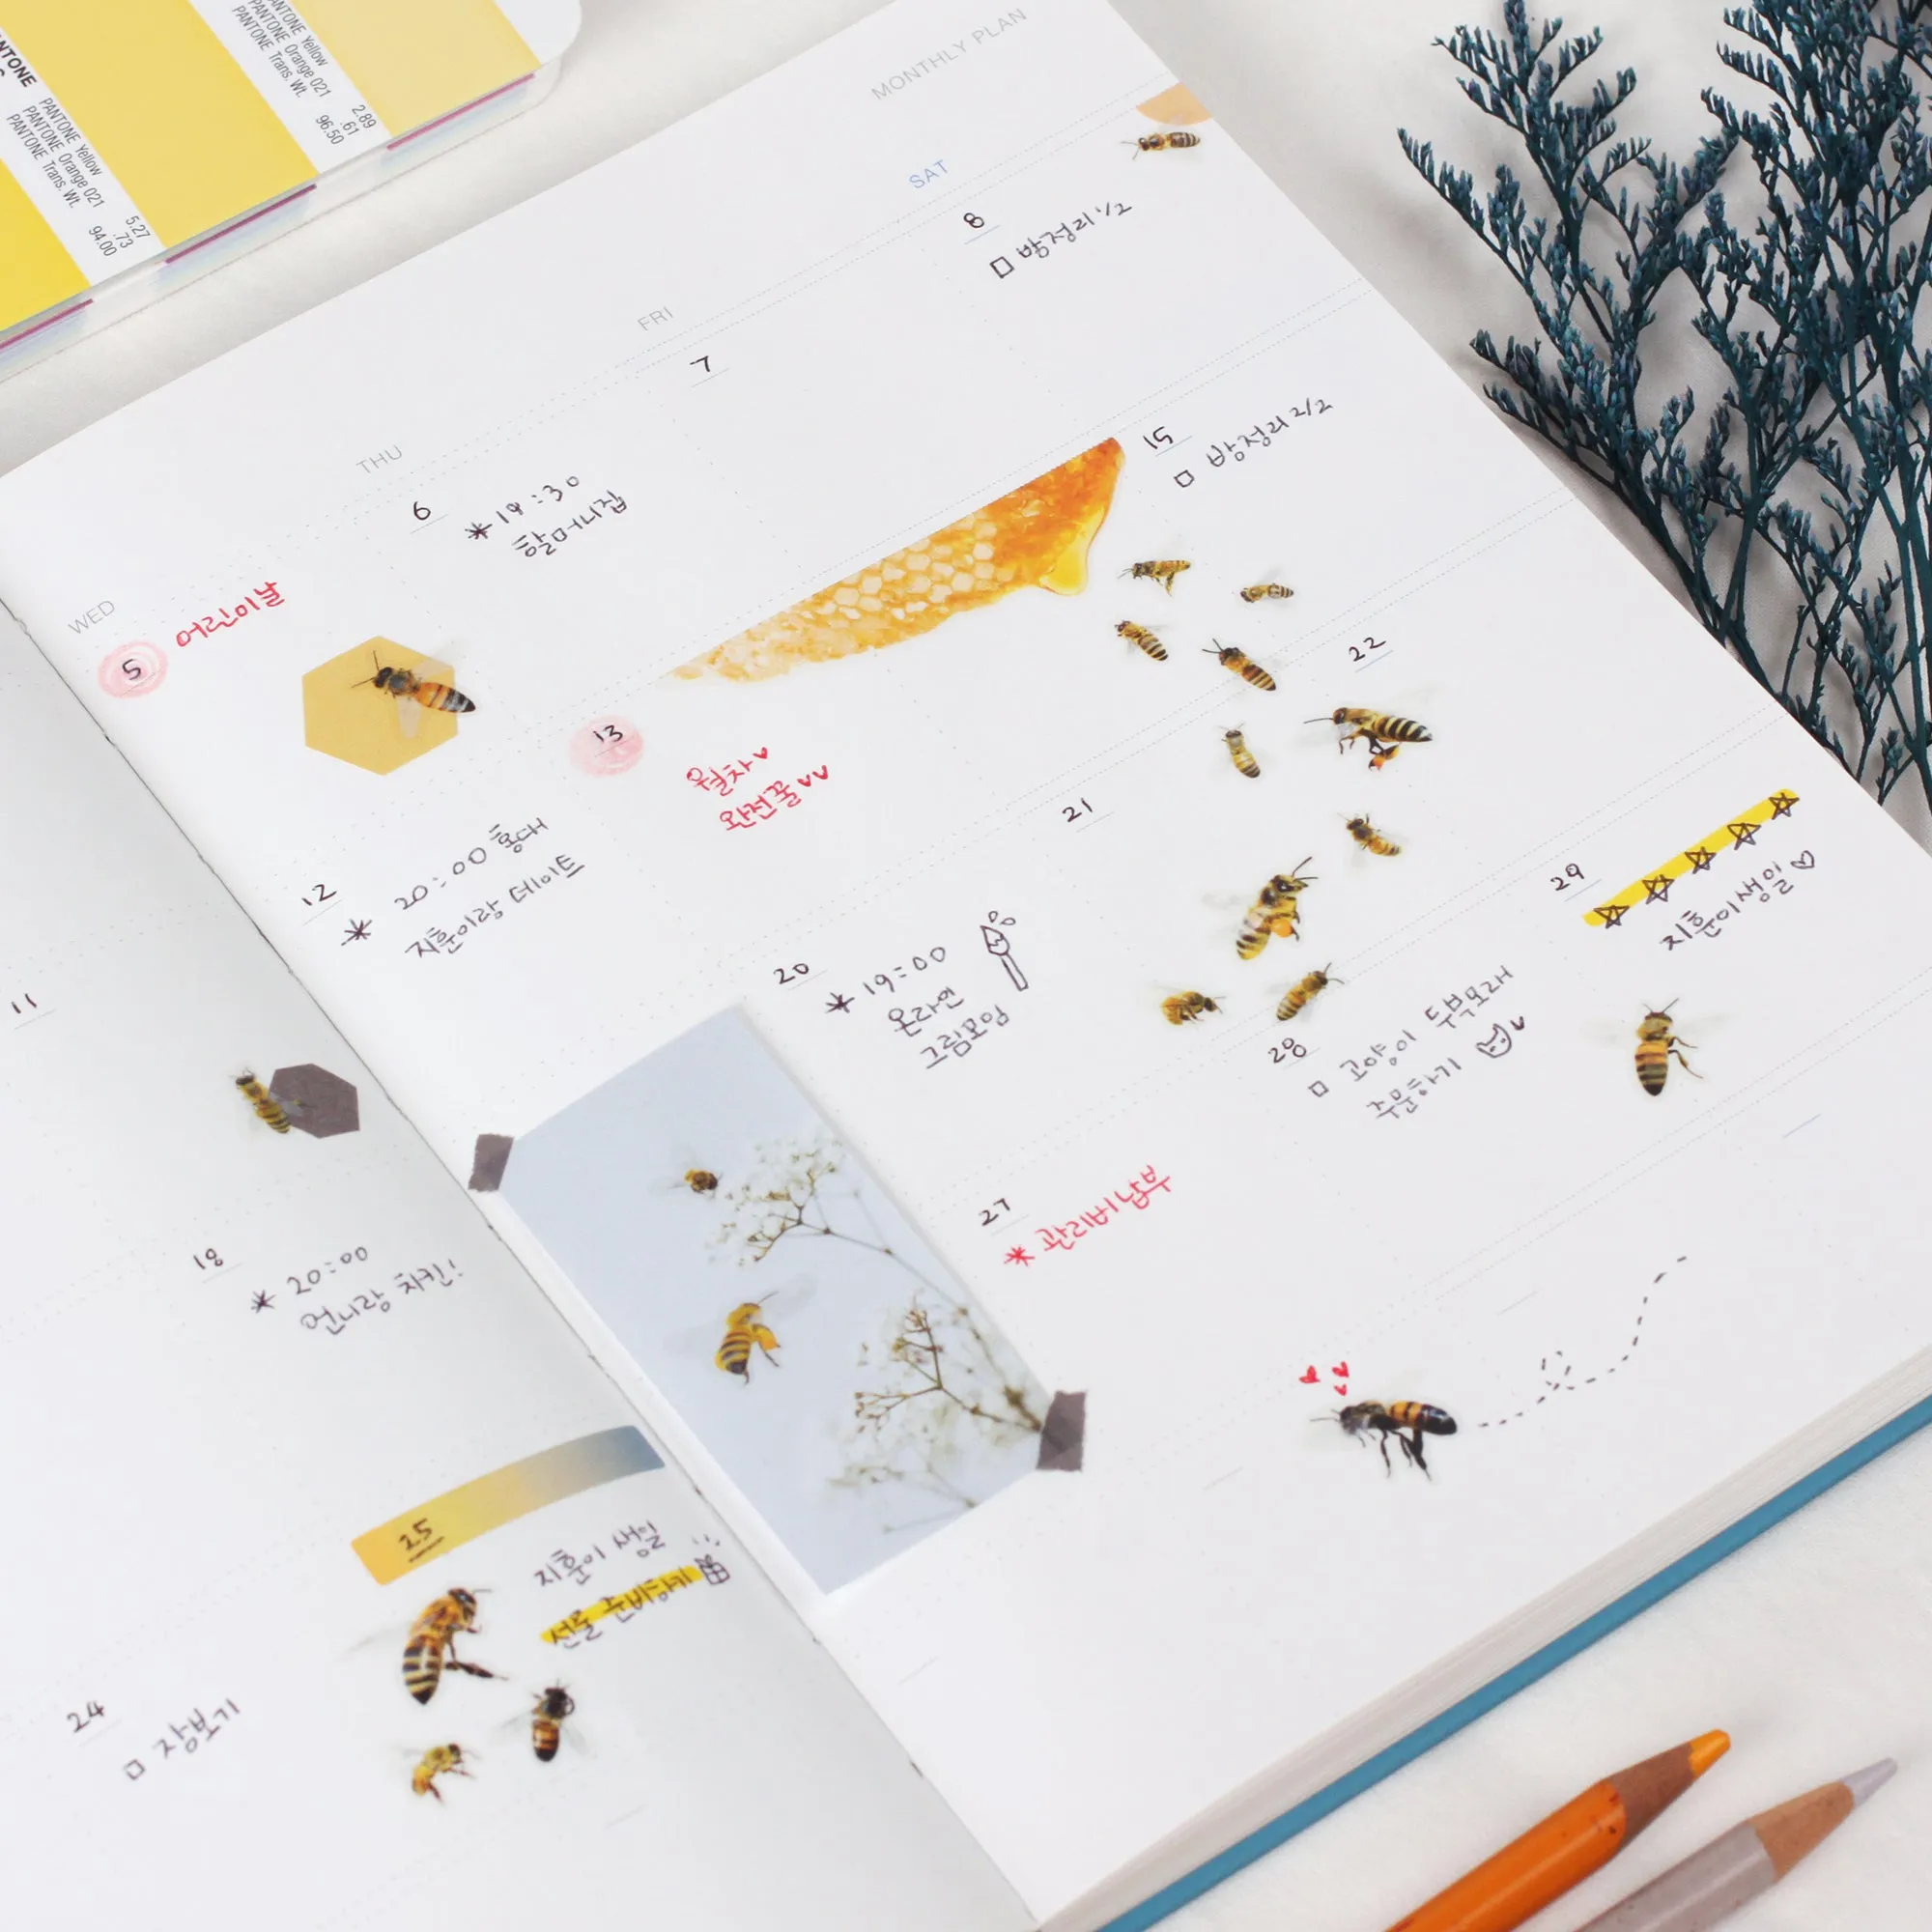 PANTONE
PANTONE Yellow 5.27
PANTONE Orange 021 .73
PANTONE Trans. Wt. 94.00
PANTONE Yellow 2.89
PANTONE Orange 021 .61
PANTONE Trans. Wt. 96.50
MONTHLY PLAN
WED
THU
FRI
SAT
5
어린이날
6
19:30
할머니집
7
8
방정리 1/2
11
12
20:00 홍대
지훈이랑 데이트
13
월차
완전꿀
15
방정리 2/2
18
20:00
언니랑 치킨!
20
19:00
온라인
그림모임
21
22
24
장보기
25
지훈이 생일
선물 준비하기
27
관리비 납부
28
고양이 두부모래
주문하기
29
지훈이 생일